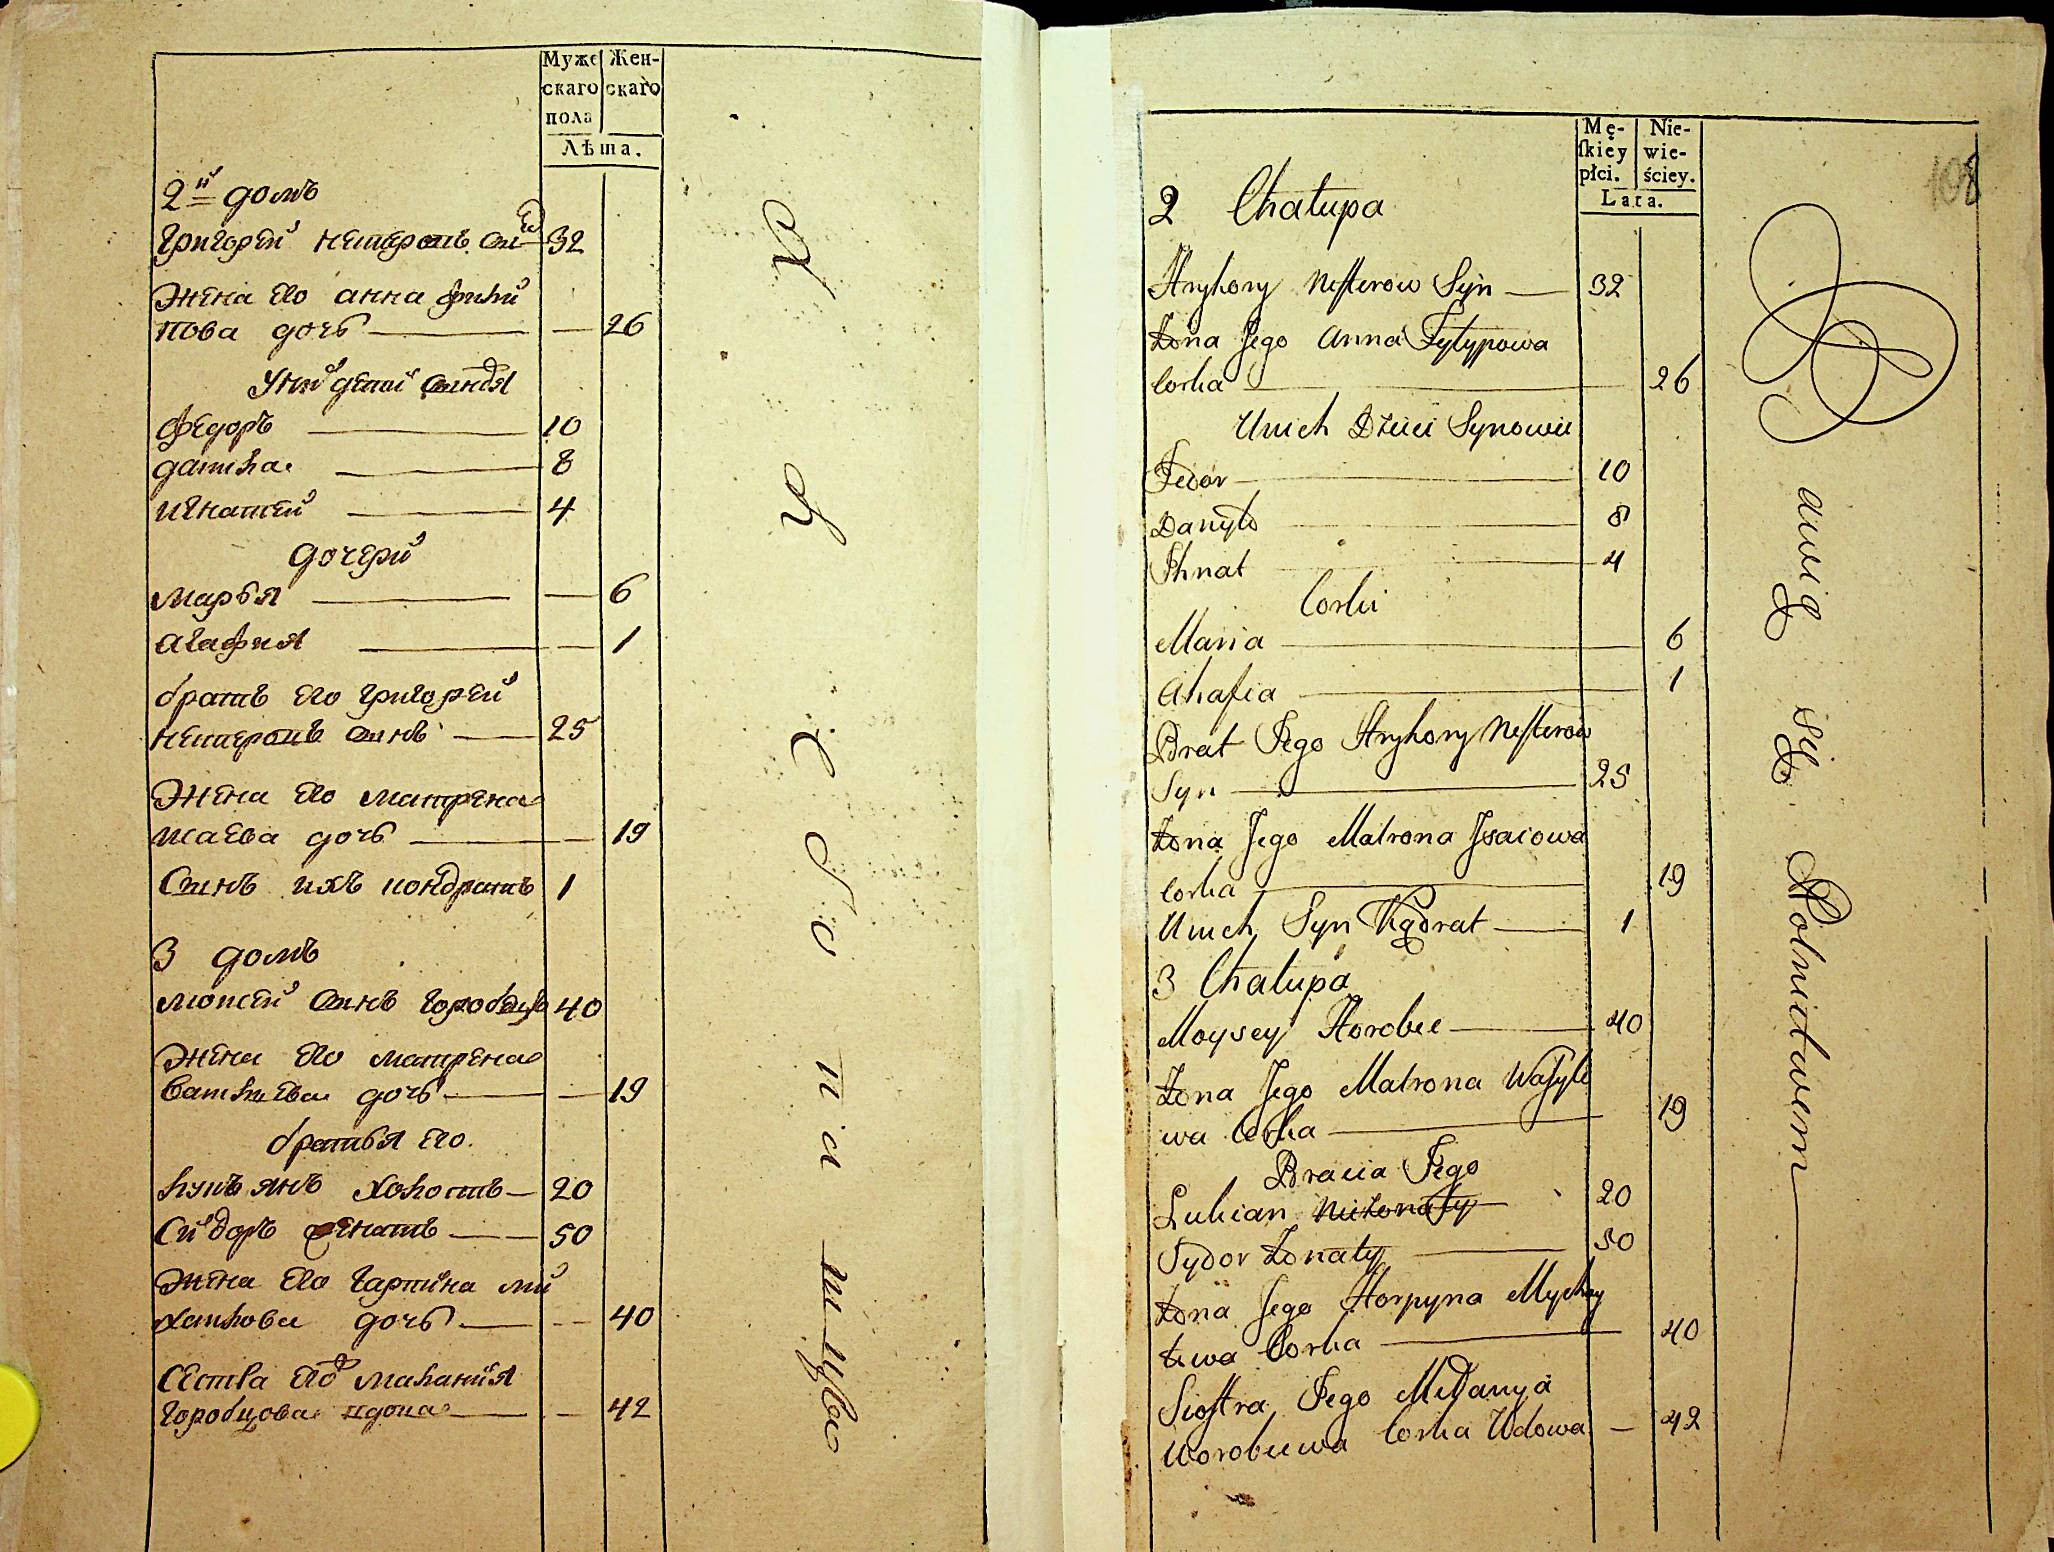 Муже
скаго
пола
Жен-
скаго
Лѣта.
2й домъ
Григорей Нестеровъ сынъ 32
Жена его анна фили
пова дочь — 26
У нихъ дети сыновья
Федоръ — 10
данила — 8
Игнатей — 4
дочери
Марья — 6
агафия — 1
братъ его григорей
Нестеровъ сынъ — 25
Жена его матрена
исаева дочь — 19
Сынъ ихъ кондратъ 1
3 домъ
Мойсей сынъ горобецъ 40
Жена его матрена
Василева дочь — 19
братья его
лукъянъ холостъ — 20
Сидоръ женатъ — 50
Жена его гарпина ми
хайлова дочь — 40
Сестра его малания
горобцова вдова — 42
Хлебопашцы
Mę-
skiey
płci.
Nie-
wie-
ściey.
Lata.
108
2 Chałupa
Hryhory Nesterow Syn — 32
Żona Jego Anna Fylypowa
Corka — 26
U nich Dzieci Synowie
Fedor — 10
Danyło — 8
Ihnat — 4
Corki
Maria — 6
Ahafia — 1
Brat Jego Hryhory Nesterow
Syn — 25
Żona Jego Matrona Jsaiowa
Corka — 19
U nich Syn Kądrat — 1
3 Chałupa
Moysey Horobec — 40
Żona Jego Matrona Wasyle
wa Corka — 19
Bracia Jego
Lukian Nieżonaty 20
Sydor Żonaty — 50
Żona Jego Horpyna Mychay
łowa Corka — 40
Siostra Jego Mełanya
Worobcewa Corka Wdowa — 42
Bawią się Rolnictwem